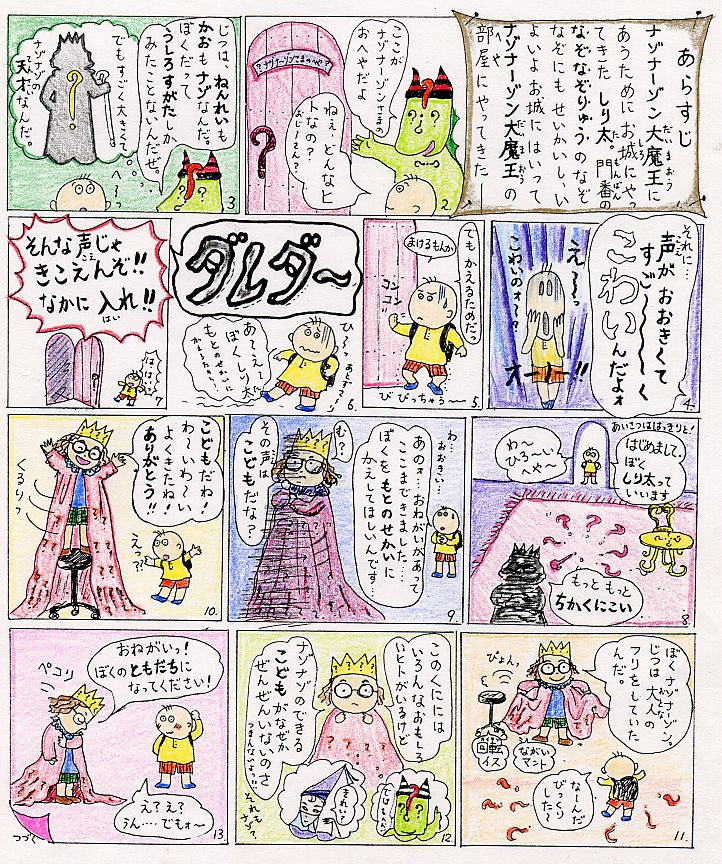 あらすじ
ナゾナーゾン大魔王に
あうためにお城にやっ
てきた しり太。門番の
なぞなぞりゅうのなぞ
なぞにもせいかいし、い
よいよお城にはいって
ナゾナーゾン大魔王の
部屋にやってきた―
1.
ここが
ナゾナーゾンさまの
おへやだよ
ねぇ、どんなヒ
トなの?
おじーさん?
?
2.
じつは、ねんれいも
かおもナゾなんだ。
ぼくだって、
うしろすがたしか
みたことないんだぜ。
でもすごく大きくて
ナゾナゾの
天才なんだ。
へ〜っ
3.
それに…
声がおおきくて
すご〜〜く
こわいんだよォ
え〜っ
こわいのォ〜?
オーリー!!
4.
でも かえるためだっ
まけるもんか
コンコン!!
びびっちゃう〜
5.
ダレダ〜
ひ〜っ
あ〜え〜
ぼくしり太
もとのせかいに
6.
そんな声じゃ
きこえんぞ!!
なかに入れ!!
ははい
7.
あいさつははっきりと!
はじめまして、
ぼく
しり太って
いいます
わ〜
ひろ〜い
へや〜
もっともっと
ちかくにこい
8.
わ…
おおきい…
あのォ…おねがいがあって
ここまできました……
ぼくをもとのせかいに
かえしてほしいんです…
む?
その声は
こどもだな?
9.
こどもだね!
わ〜いわ〜い
よくきたね!
ありがとう!!
くるりっ
えっ??
10.
ぼくナゾナーゾン。
じつは大人の
フリをしていた
んだ。
ぴょん。
回転
イス
ながい
マント
な〜んだ
びっくり
した〜
11.
このくにには
いろんなおもしろ
いヒトがいるけど
ナゾナゾのできる
こどもがなぜか
ぜんぜんいないのさ
つまんないよ〜っ!!
それもナゾ?
きれい?
12.
おねがいっ!
ぼくのともだちに
なってください!
ペコリ
え?え?
うん……でもォ〜
13.
つづく